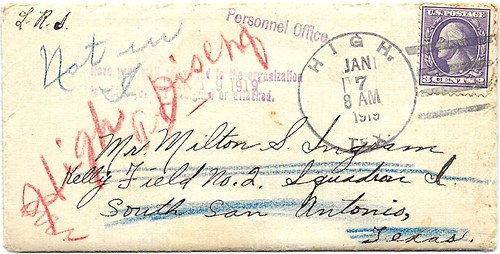 L. R. S.
Personnel Office
U.S. POSTAGE
3 CENTS 3
HIGH,
JAN
7
8 AM
1919
TEX.
Not in
I
to the organization
9 1919
or attached.
High
Disch
Mr. Milton S. Ingram
Kelly Field No. 2, Squadron I.
South San Antonio,
Texas.